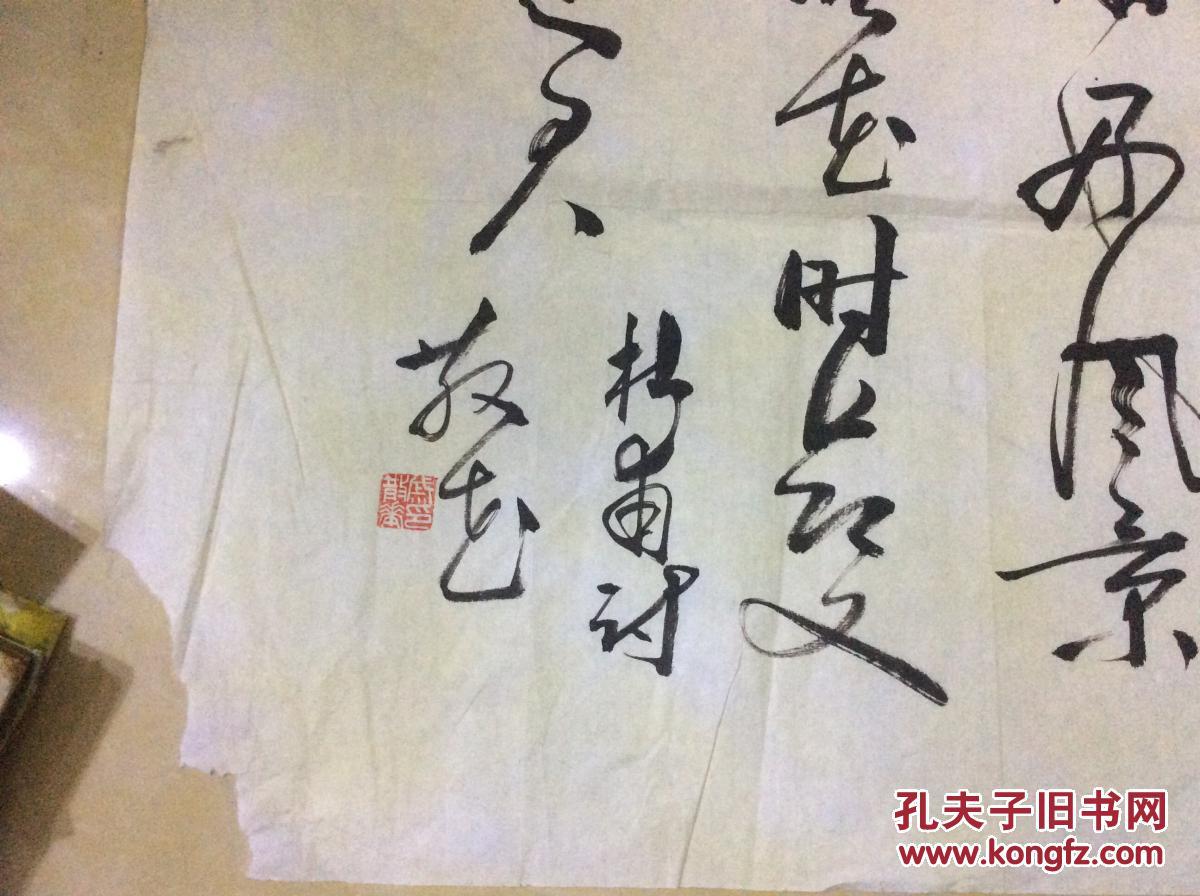 好风景
花时节又
君
杜甫诗
散花
孔夫子旧书网
www.kongfz.com